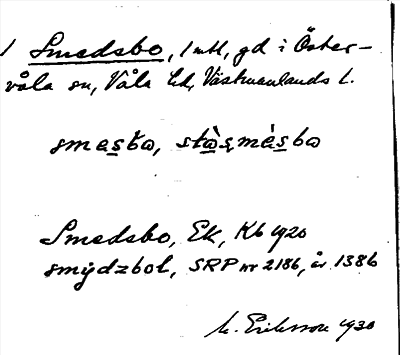 1 Smedsbo, 1 mtl, gd i Öster-
våla sn, Våla hd, Västmanlands l.
smesbo,
Smedsbo, Ek, Kb 1920
smÿdzbol, SRP nr 2186, år 1386
M. Eriksson 1930